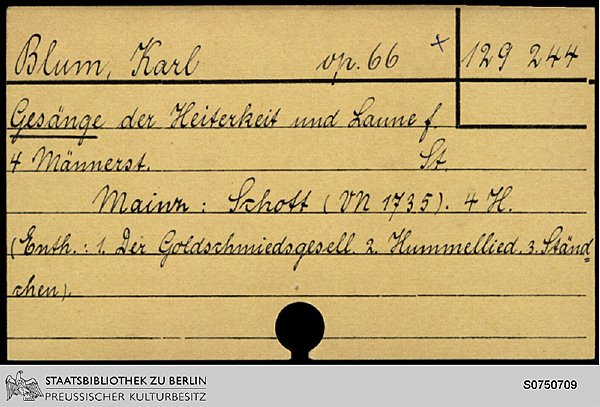 Blum, Karl op. 66 × 129 244
Gesänge der Heiterkeit und Laune f.
4 Männerst. St.
Mainz : Schott (VN 1735). 4 H.
(Enth.: 1. Der Goldschmiedsgesell. 2. Hummellied. 3. Ständ=
chen).
STAATSBIBLIOTHEK ZU BERLIN
PREUSSISCHER KULTURBESITZ
S0750709